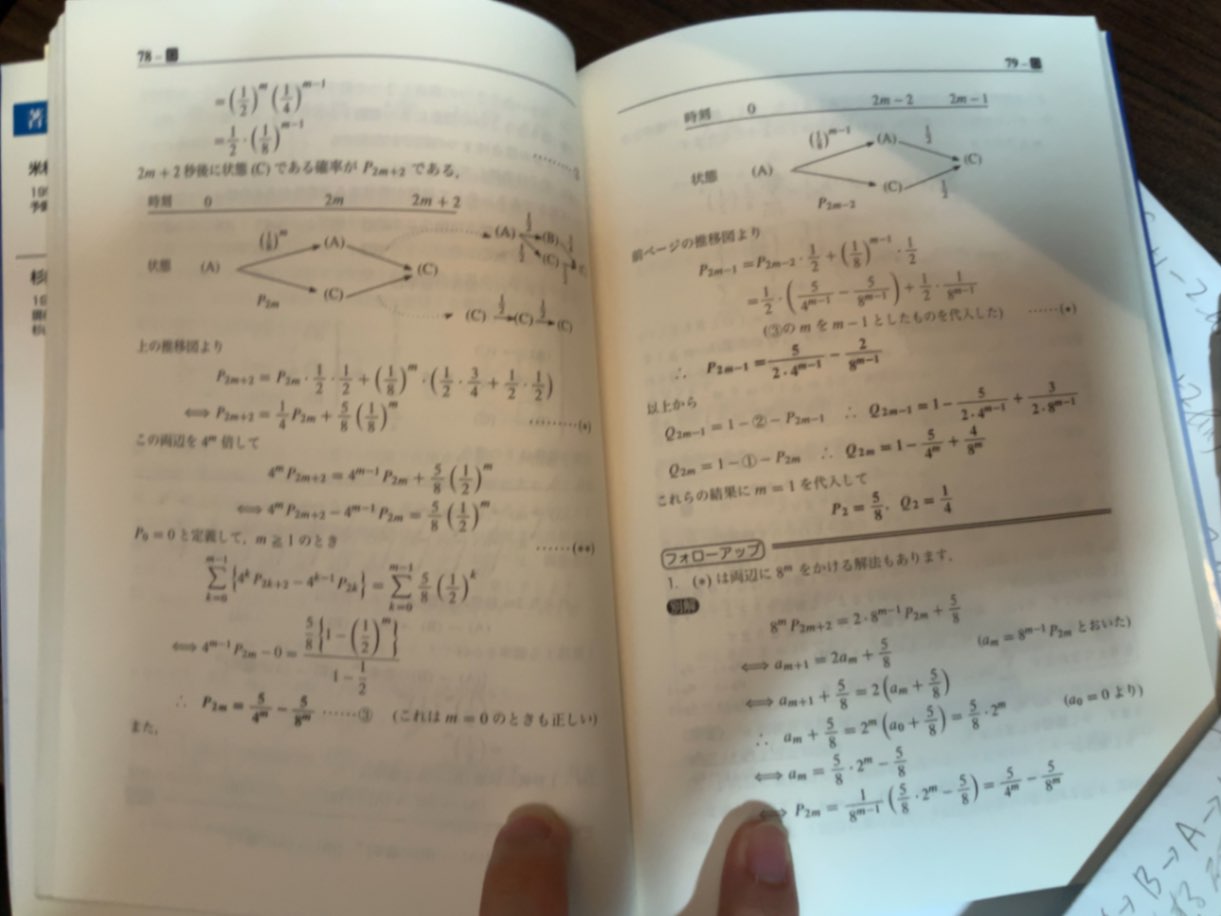 78 –
= (1/2)^m (1/4)^{m-1}
= 1/2 · (1/8)^{m-1} ………②
2m + 2 秒後に状態 (C) である確率が P_{2m+2} である.
時刻 0 2m 2m + 2
(1/8)^m (A) (A) 1/2 (B) 1/2 (C)
状態 (A) (C)
P_{2m} (C) (C) 1/2 (C) 1/2 (C)
上の推移図より
P_{2m+2} = P_{2m} · 1/2 · 1/2 + (1/8)^m · (1/2 · 3/4 + 1/2 · 1/2)
⟺ P_{2m+2} = 1/4 P_{2m} + 5/8 (1/8)^m ………(*)
この両辺を 4^m 倍して
4^m P_{2m+2} = 4^{m-1} P_{2m} + 5/8 (1/2)^m
⟺ 4^m P_{2m+2} − 4^{m-1} P_{2m} = 5/8 (1/2)^m ……(**)
P_0 = 0 と定義して, m ≧ 1 のとき
Σ_{k=0}^{m-1} {4^k P_{2k+2} − 4^{k-1} P_{2k}} = Σ_{k=0}^{m-1} 5/8 (1/2)^k
⟺ 4^{m-1} P_{2m} − 0 = 5/8 {1 − (1/2)^m} / (1 − 1/2)
∴ P_{2m} = 5/4^m − 5/8^m ……③ (これは m = 0 のときも正しい)
また,
79 –
時刻 0 2m − 2 2m − 1
(1/8)^{m-1} (A) 1/2
状態 (A) (C)
P_{2m-2} (C) 1/2
前ページの推移図より
P_{2m-1} = P_{2m-2} · 1/2 + (1/8)^{m-1} · 1/2
= 1/2 · (5/4^{m-1} − 5/8^{m-1}) + 1/2 · 1/8^{m-1}
(③の m を m − 1 としたものを代入した) ……(*)
∴ P_{2m-1} = 5/(2·4^{m-1}) − 2/8^{m-1}
以上から
Q_{2m-1} = 1 − ② − P_{2m-1} ∴ Q_{2m-1} = 1 − 5/(2·4^{m-1}) + 3/(2·8^{m-1})
Q_{2m} = 1 − ① − P_{2m} ∴ Q_{2m} = 1 − 5/4^m + 4/8^m
これらの結果に m = 1 を代入して
P_2 = 5/8, Q_2 = 1/4
フォローアップ
1. (*) は両辺に 8^m をかける解法もあります.
別解
8^m P_{2m+2} = 2 · 8^{m-1} P_{2m} + 5/8
⟺ a_{m+1} = 2a_m + 5/8 (a_m = 8^{m-1} P_{2m} とおいた)
⟺ a_{m+1} + 5/8 = 2(a_m + 5/8)
∴ a_m + 5/8 = 2^m (a_0 + 5/8) = 5/8 · 2^m (a_0 = 0 より)
⟺ a_m = 5/8 · 2^m − 5/8
⟺ P_{2m} = 1/8^{m-1} (5/8 · 2^m − 5/8) = 5/4^m − 5/8^m
B → A →